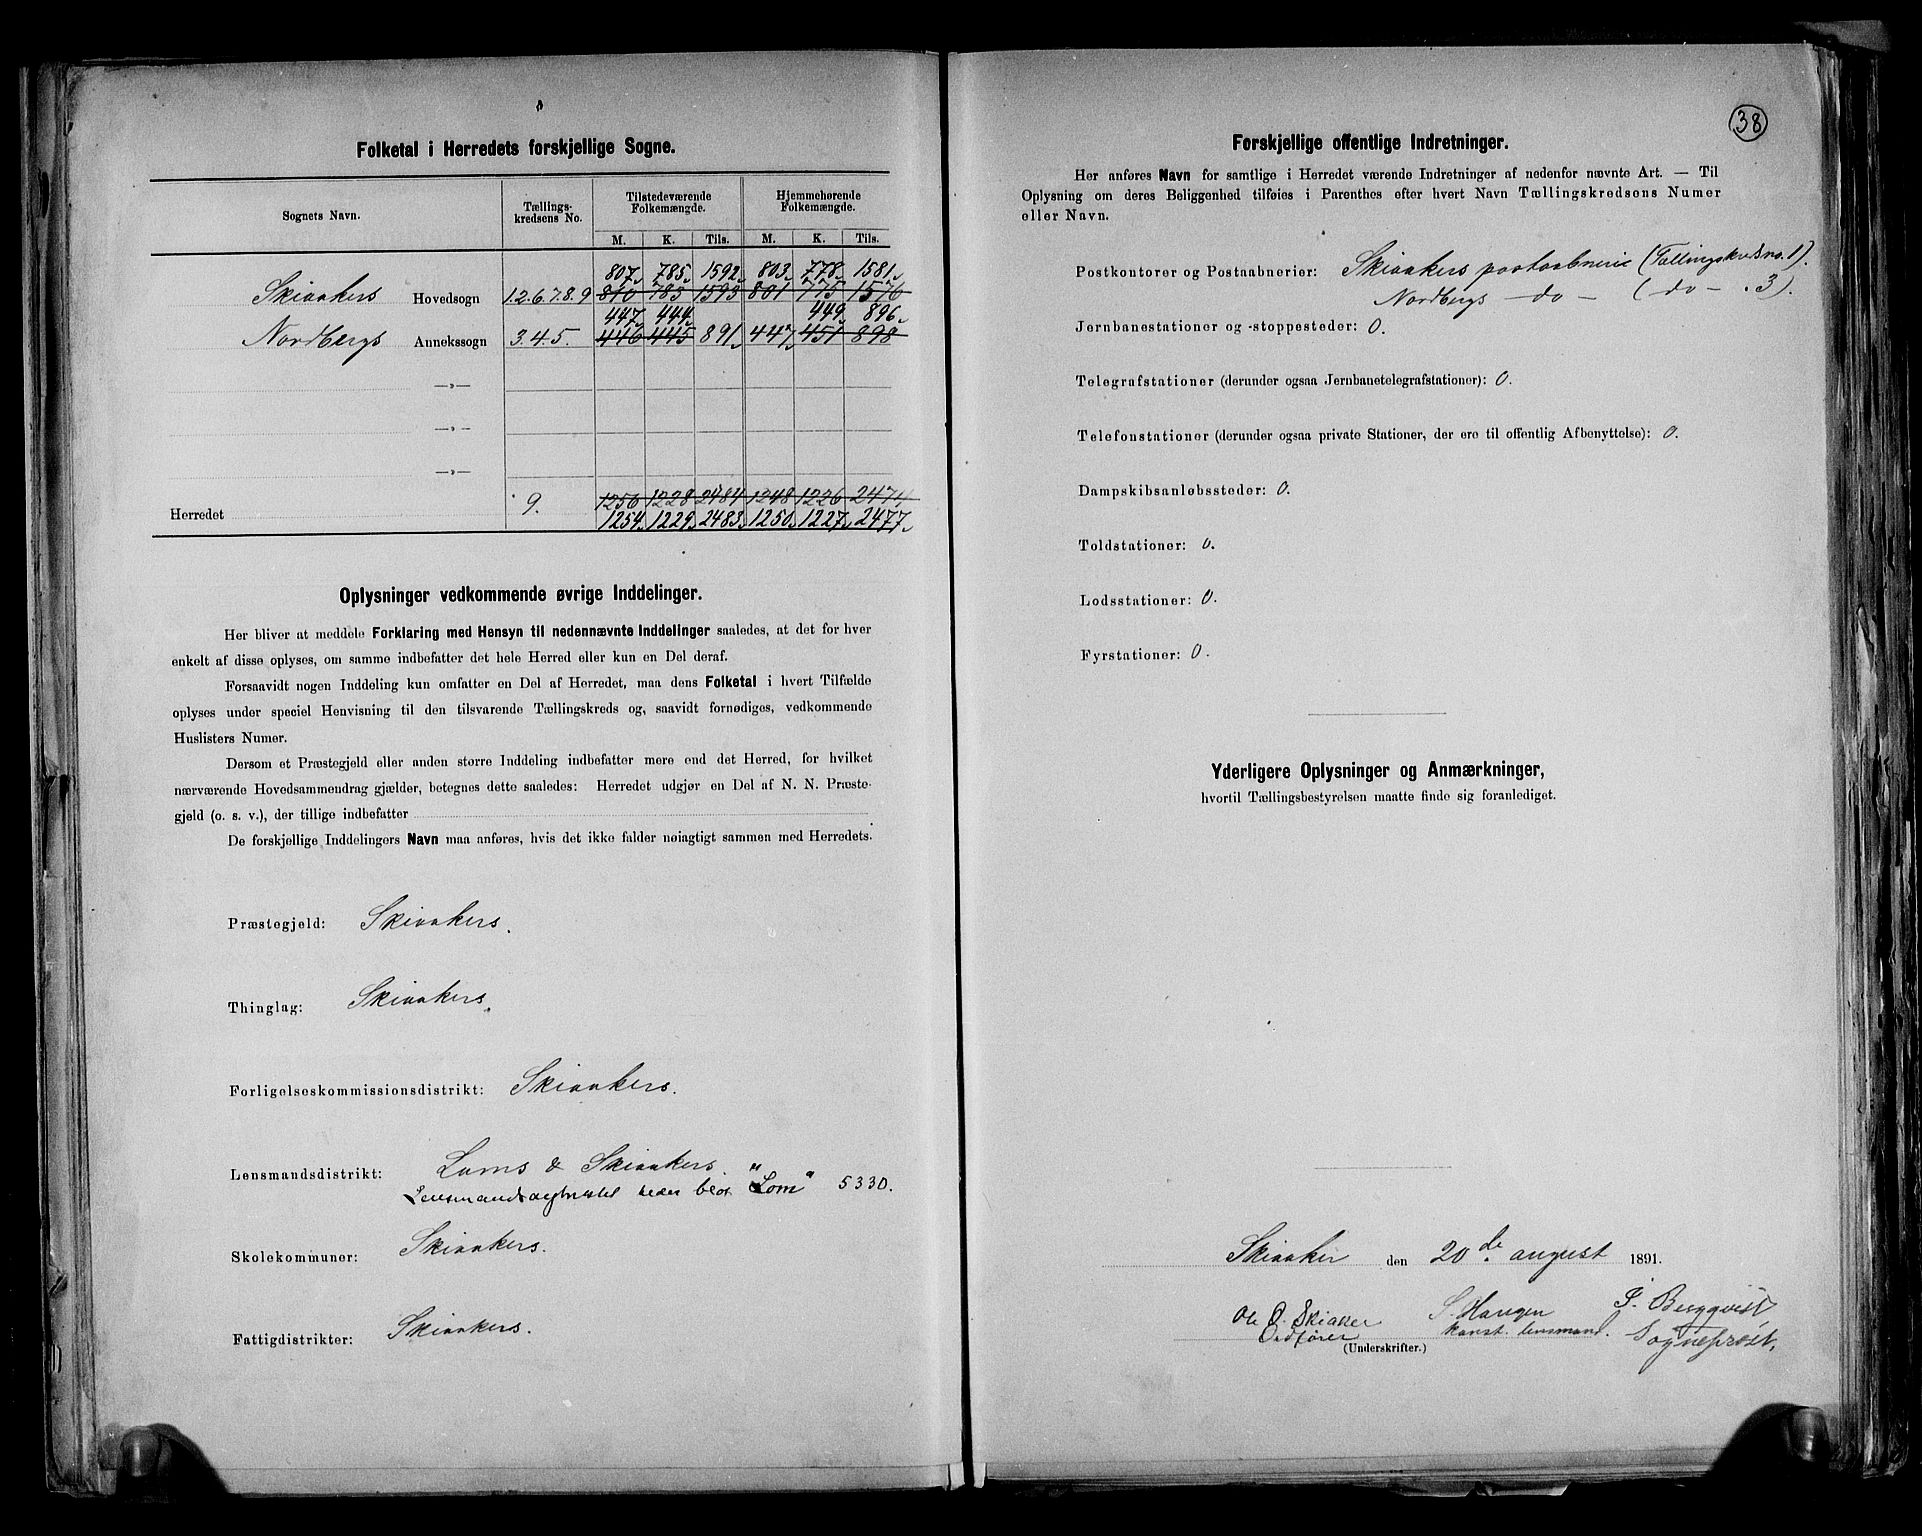 Folketal i Herredets forskjellige Sogne.
Sognets Navn. Tællings-kredsens No. Tilstedeværende Folkemængde. Hjemmehørende Folkemængde.
M. K. Tils. M. K. Tils.
807 785 1592 803 778 1581
Skiaakers Hovedsogn 1.2.6.7.8.9 810 783 1593 801 775 1576
447 444 449 896
Nordbergs Annekssogn 3.4.5. 446 445 891 447 451 898
—„—
—„—
—„—
9. 1256 1228 2484 1248 1226 2474
Herredet 1254 1229 2483 1250 1227 2477
Oplysninger vedkommende øvrige Inddelinger.
Her bliver at meddele Forklaring med Hensyn til nedennævnte Inddelinger saaledes, at det for hver
enkelt af disse oplyses, om samme indbefatter det hele Herred eller kun en Del deraf.
Forsaavidt nogen Inddeling kun omfatter en Del af Herredet, maa dens Folketal i hvert Tilfælde
oplyses under speciel Henvisning til den tilsvarende Tællingskreds og, saavidt fornødiges, vedkommende
Huslisters Numer.
Dersom et Præstegjeld eller anden større Inddeling indbefatter mere end det Herred, for hvilket
nærværende Hovedsammendrag gjælder, betegnes dette saaledes: Herredet udgjør en Del af N. N. Præste-
gjeld (o. s. v.), der tillige indbefatter
De forskjellige Inddelingers Navn maa anføres, hvis det ikke falder nøiagtigt sammen med Herredets.
Præstegjeld: Skiaakers.
Thinglag: Skiaakers.
Forligelseskommissionsdistrikt: Skiaakers.
Lensmandsdistrikt: Loms & Skiaakers.
"Lom" 5330.
Skolekommuner: Skiaakers.
Fattigdistrikter: Skiaakers.
38
Forskjellige offentlige Indretninger.
Her anføres Navn for samtlige i Herredet værende Indretninger af nedenfor nævnte Art. — Til
Oplysning om deres Beliggenhed tilføies i Parenthes efter hvert Navn Tællingskredsens Numer
eller Navn.
Postkontorer og Postaabnerier: Skiaakers postaabneri (Tællingskreds no. 1).
Nordbergs — do — ( do - . 3).
Jernbanestationer og -stoppesteder: 0.
Telegrafstationer (derunder ogsaa Jernbanetelegrafstationer): 0.
Telefonstationer (derunder ogsaa private Stationer, der ere til offentlig Afbenyttelse): 0.
Dampskibsanløbssteder: 0.
Toldstationer: 0.
Lodsstationer: 0.
Fyrstationer: 0.
Yderligere Oplysninger og Anmærkninger,
hvortil Tællingsbestyrelsen maatte finde sig foranlediget.
Skiaaker den 20de august 1891.
Ole O. Skiaker S. Haugen P. Bergqvist
Ordfører konst. lensmand. Sogneprest.
(Underskrifter.)